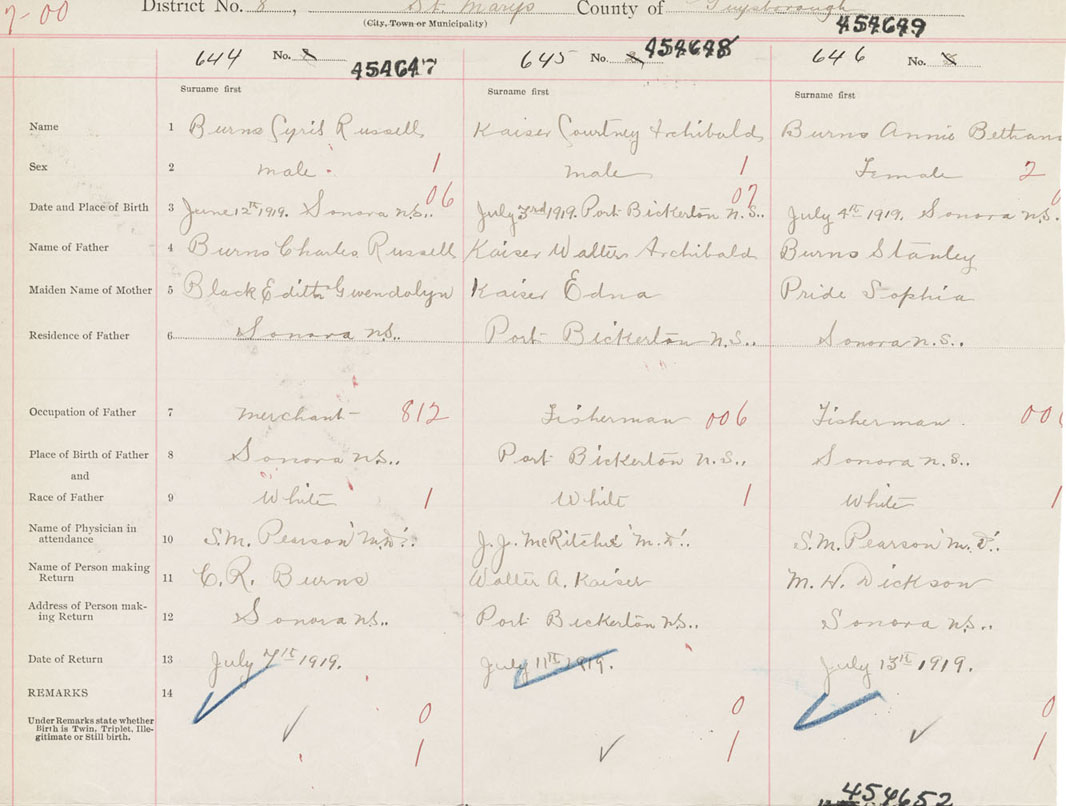 7-00 District No. 8, St. Marys County of Guysborough
(City, Town or Municipality)
454649
644 No. 454647 645 No. 454648 646 No.
Surname first Surname first Surname first
Name 1 Burns Cyril Russell Kaiser Courtney Archibald Burns Annie
Sex 2 male. 1 male 1 Female 2
06 07
Date and Place of Birth 3 June 12th 1919. Sonora N.S.. July 3rd 1919. Port Bickerton N.S.. July 4th 1919. Sonora N.S.
Name of Father 4 Burns Charles Russell Kaiser Walter Archibald Burns Stanley
Maiden Name of Mother 5 Black Edith Gwendolyn Kaiser Edna Pride Sophia
Residence of Father 6 Sonora N.S.. Port Bickerton N.S.. Sonora N.S..
Occupation of Father 7 Merchant 812 Fisherman 006 Fisherman. 006
Place of Birth of Father 8 Sonora N.S.. Port Bickerton N.S.. Sonora N.S..
and
Race of Father 9 White 1 White 1 White 1
Name of Physician in
attendance 10 S.M. Pearson M.D. J.J. McRitchie M.D. S.M. Pearson M.D.
Name of Person making
Return 11 C.R. Burns Walter A. Kaiser M. H. Dickson
Address of Person mak-
ing Return 12 Sonora N.S.. Port Bickerton N.S.. Sonora N.S..
Date of Return 13 July 7th 1919. July 11th 1919. July 13th 1919.
REMARKS 14
Under Remarks state whether
Birth is Twin, Triplet, Ille-
gitimate or Still birth.
0 0 0
1 1 1
454652